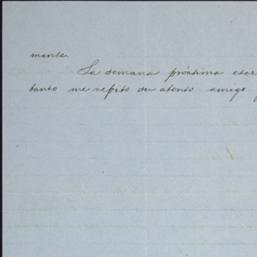 mente.
La semana próxima escr
tanto me repito su atento amigo